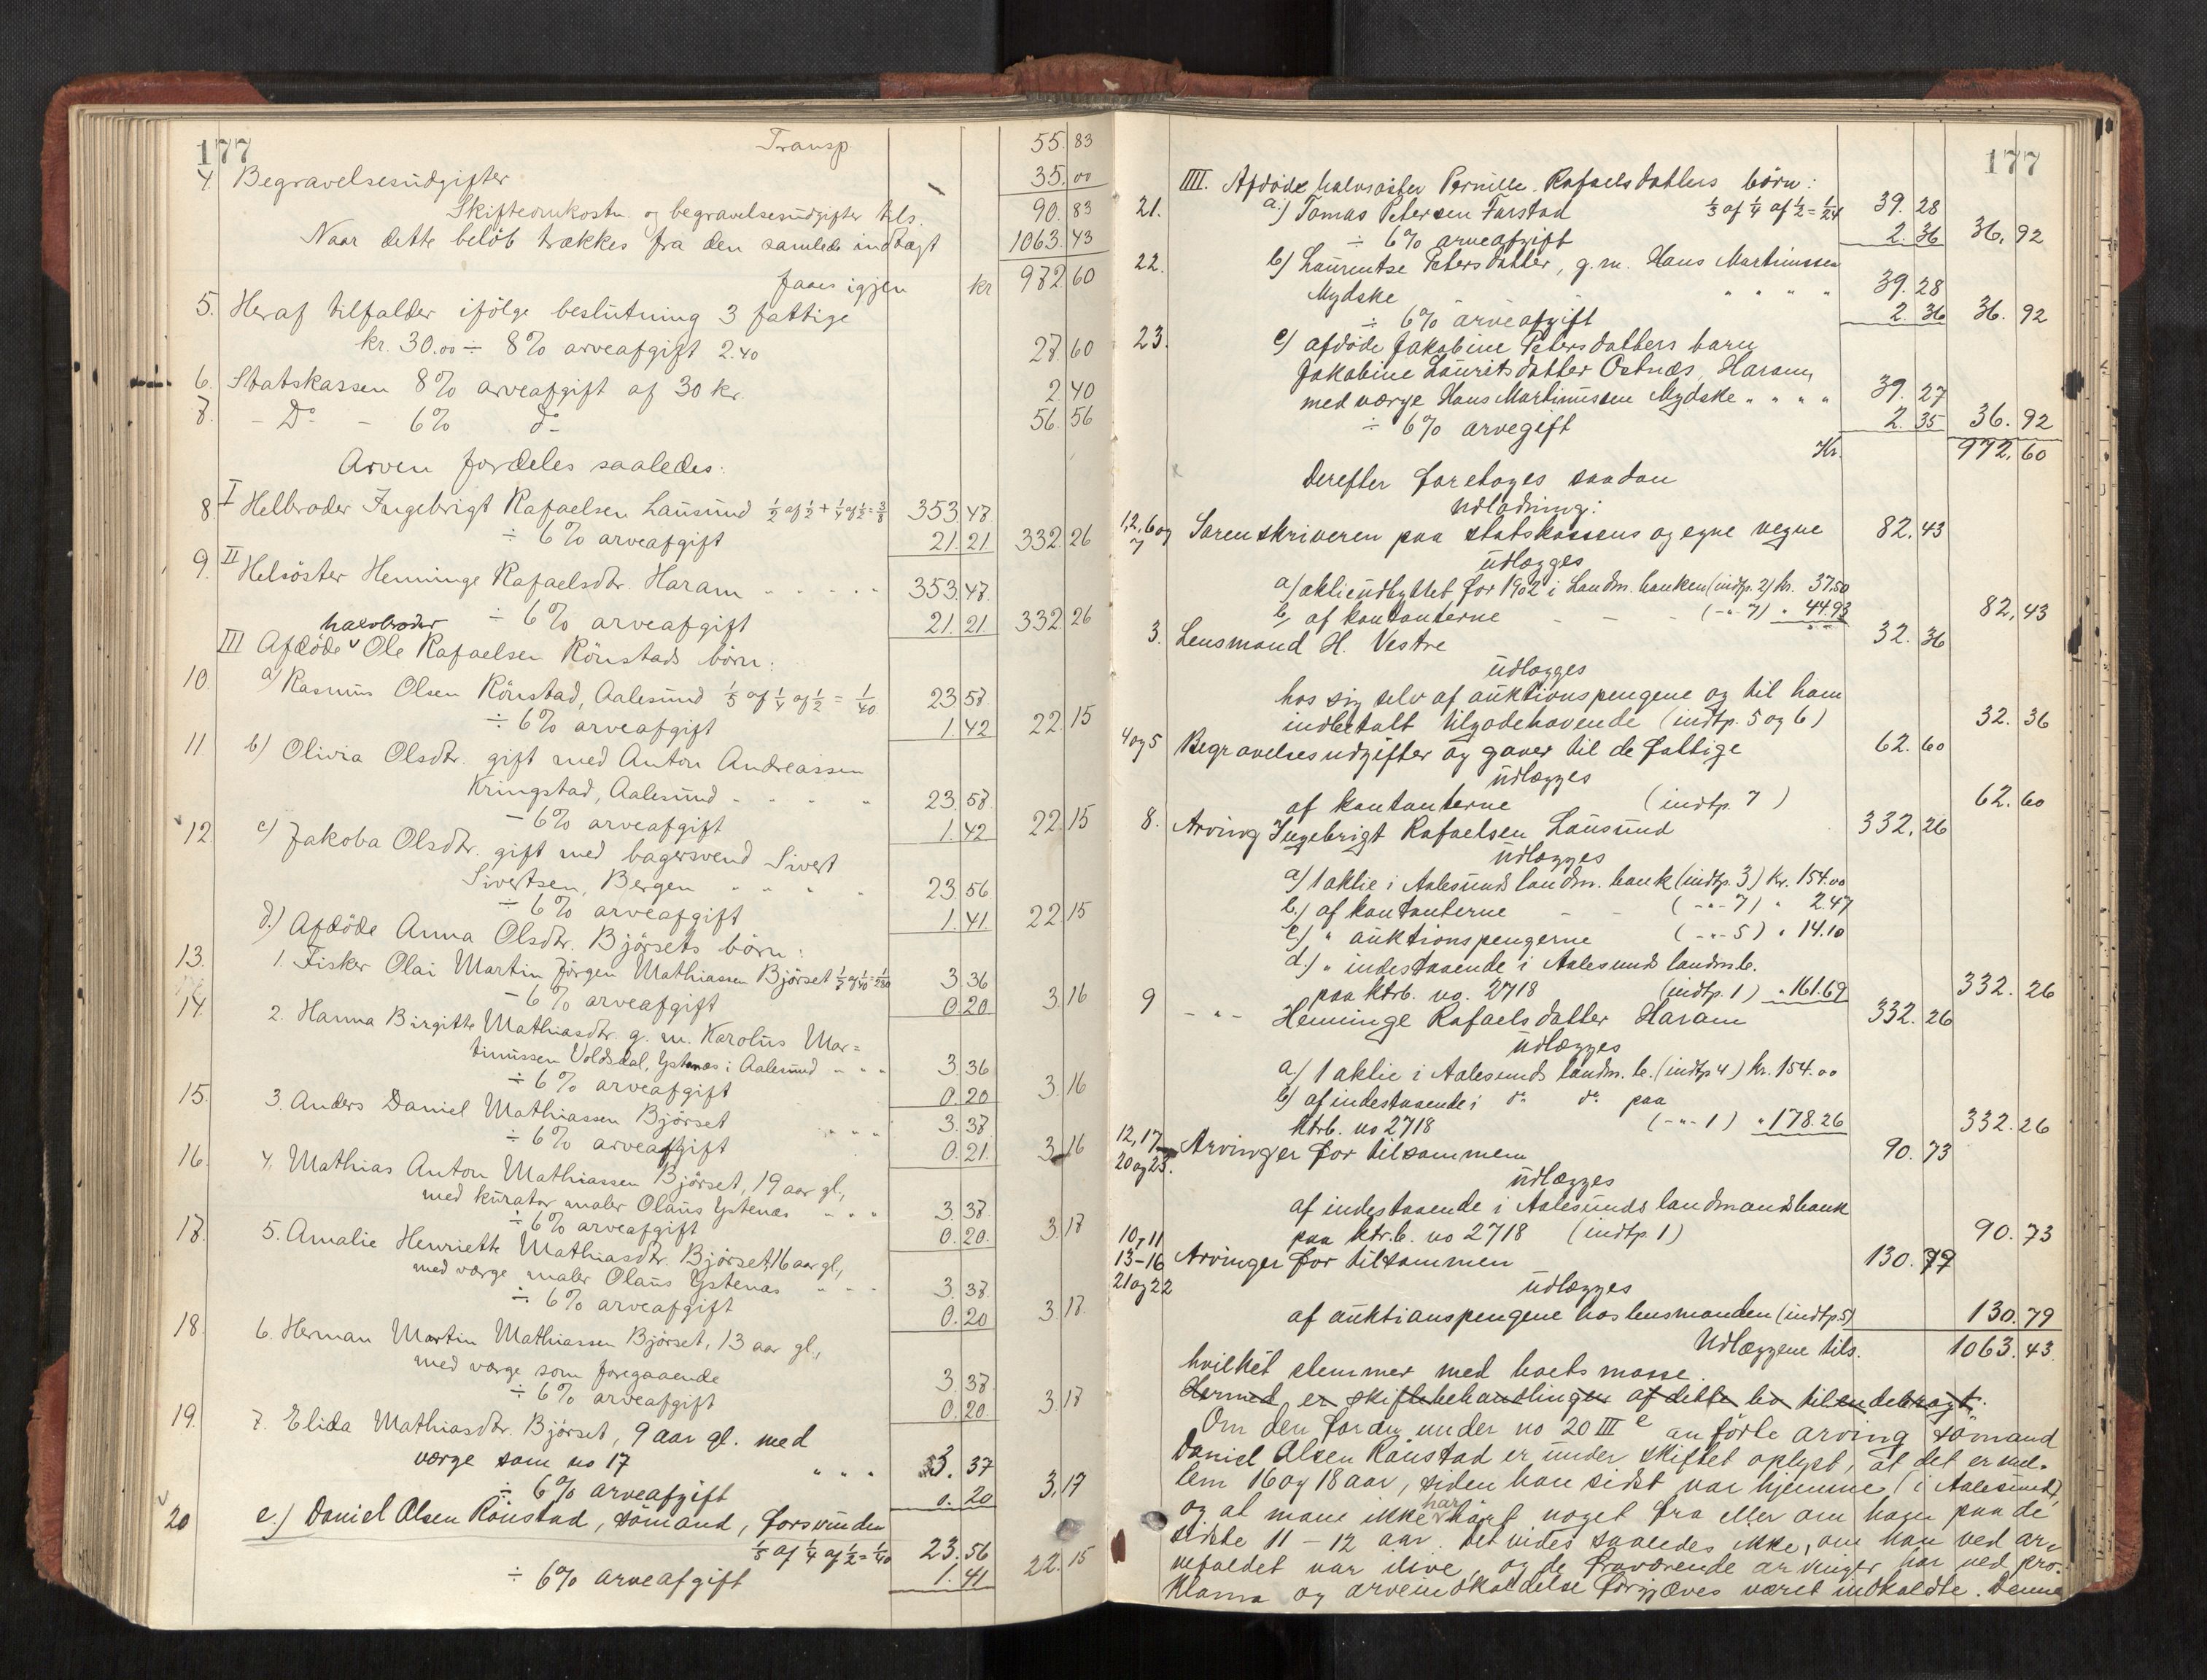 177
Transp 55.83
4. Begravelsesudgifter 35.00
Skifteomkostn. og begravelsesudgifter tils. 90.83
Naar dette beløb trækkes fra den samlede indtægt 1063.43
faaes igjen kr 972 60
5. Heraf tilfalder ifølge beslutning 3 fattige
kr. 30.00 ÷ 8% arveafgift 2.40 27.60
6. Statskassen 8% arveafgift af 30 kr. 2.40
7. - Do - 6% do 56.56
Arven fordeles saaledes:
8 I Helbroder Ingebrigt Rafaelsen Lausund ½ af ½ + ¼ af ½ = 3/8 353.47
÷ 6% arveafgift 21.21 332.26
9. II Helsøster Henninge Rafaelsdtr. Haram - - - - - 353.47
÷ 6% arveafgift 21.21 332.26
halvbroder
III Afdøde v Ole Rafaelsen Rönstads börn:
10. a) Rasmus Olsen Rönstad, Aalesund 1/5 af ¼ af ½ = 1/40 23.57
÷ 6% arveafgift 1.42 22.15
11 b) Olivia Olsdtr. gift med Anton Andreassen
Kringstad, Aalesund - " " " 23.57
- 6% arveafgift 1.42 22.15
12. c) Jakoba Olsdtr. gift med bagersvend Sivert
Sivertsen, Bergen " " " " 23.56
÷ 6% arveafgift 1.41 22.15
d.) Afdöde Anna Olsdtr. Björsets börn:
13. 1. Fisker Olai Martin Jörgen Mathiassen Björset 1/7 af 1/40 = 1/280 3.36
- 6% arveafgift 0.20 3.16
14. 2. Hanna Birgitte Mathiasdtr. g. m. Karolus Mar=
tinussen Voldsdal, Ystenæs i Aalesund - " " 3.36
÷ 6% arveafgift 0.20 3.16
15. 3. Anders Daniel Mathiassen Björset " " " 3.37
÷ 6% arveafgift 0.21 3.16
16. 4. Mathias Anton Mathiassen Björset, 19 aar gl.,
med kurator maler Olaus Ystenæs " " " 3.37
÷ 6% arveafgift 0.20 3.17
17. 5. Amalie Henriette Mathiasdtr. Björset 16 aar gl.,
med værge maler Olaus Ystenæs " " " 3.37
÷ 6% arveafgift 0.20 3.17
18. 6. Herman Martin Mathiassen Björset, 13 aar gl.,
med værge som foregaaende 3.37
÷ 6% arveafgift 0.20 3.17
19. 7. Elida Mathiasdtr. Björset, 9 aar gl. med
værge som no 17 " " " 3.37
÷ 6% arveafgift 0.20 3.17
20 e.) Daniel Olsen Rönstad, sömand, forsvunden
1/5 af ¼ af ½ = 1/40 23.56
÷ 6% arveafgift 1.41 22.15
177
IIII. Afdöde halvsöster Pernille Rafaelsdatters börn:
21. a.) Tomas Petersen Farstad 1/3 af ¼ af ½ = 1/24 39.28
÷ 6% arveafgift 2.36 36.92
22. b) Laurentse Petersdatter, g.m. Hans Martinussen
Mydske " " " " 39.28
÷ 6% arveafgift 2.36 36.92
23. c) afdöde Jakobine Petersdatters barn
Jakobine Lauritsdatter Ostnæs, Haram,
med værge Hans Martinussen Mydske " " " " 39.27
÷ 6% arvegift 2.35 36.92
Kr. 972.60
Derefter foretoges saadan
Udlodning:
1,2,6 og 7 Sorenskriveren paa statskassens og egne vegne 82.43
udlægges
a) aktieudbyttet for 1902 i Landm. banken (indtp. 2) kr. 37.50
b) af kontanterne - - - (-"- 7) " 44.93 82.43
3. Lensmand H. Vestre 32.36
udlægges
hos sig selv af auktionspengene og til ham
indbetalt tilgodehavende (indtp. 5 og 6) 32.36
4 og 5 Begravelsesudgifter og gaver til de fattige 62.60
udlægges
af kontanterne (indtp. 7) 62.60
8. Arving Ingebrigt Rafaelsen Lausund 332.26
udlægges
a) 1 aktie i Aalesunds landm. bank (indtp. 3) Kr. 154.00
b.) af kontanterne - - (-"- 7) " 2.47
c.) " auktionspengerne (-"- 5) " 14.10
d.) " indestaaende i Aalesunds landm.b.
paa ktrb. no. 2718 (indtp. 1) " 161.69 332.26
9 -"- Henninge Rafaelsdatter Haram 332.26
udlægges
a.) 1 aktie i Aalesunds landm. b. (indtp 4) kr. 154.00
b) af indestaaende i do do paa
ktrb. no 2718 (-"- 1) " 178.26 332.26
12,17 20 og 23. Arvinger for tilsammen 90.73
udlægges
af indestaaende i Aalesunds landmandsbank
paa ktr.b. no 2718 (indtp. 1) 90.73
10, 11 13-16 21 og 22 Arvinger for tilsammen 130.79
udlægges
af auktionspengene hos lensmanden (indtp. 5) 130.79
Udlæggene tils. 1063.43
hvilket stemmer med boets masse.
Hermed er skiftebehandlingen af dette bo tilendebragt.
Om den foran under no 20 III e anförte arving sömand
Daniel Olsen Rönstad er under skiftet oplyst, at det er mel-
lem 16 og 18 aar, siden han sidst var hjemme (i Aalesund),
og at man ikke har hört noget fra eller om ham paa de
sidste 11 - 12 aar. Det vides saaledes ikke, om han ved ar-
vefaldet var ilive, og de fraværende arvinger har ved pro-
klama og arveindkaldelse forgjæves været indkaldte. Denne